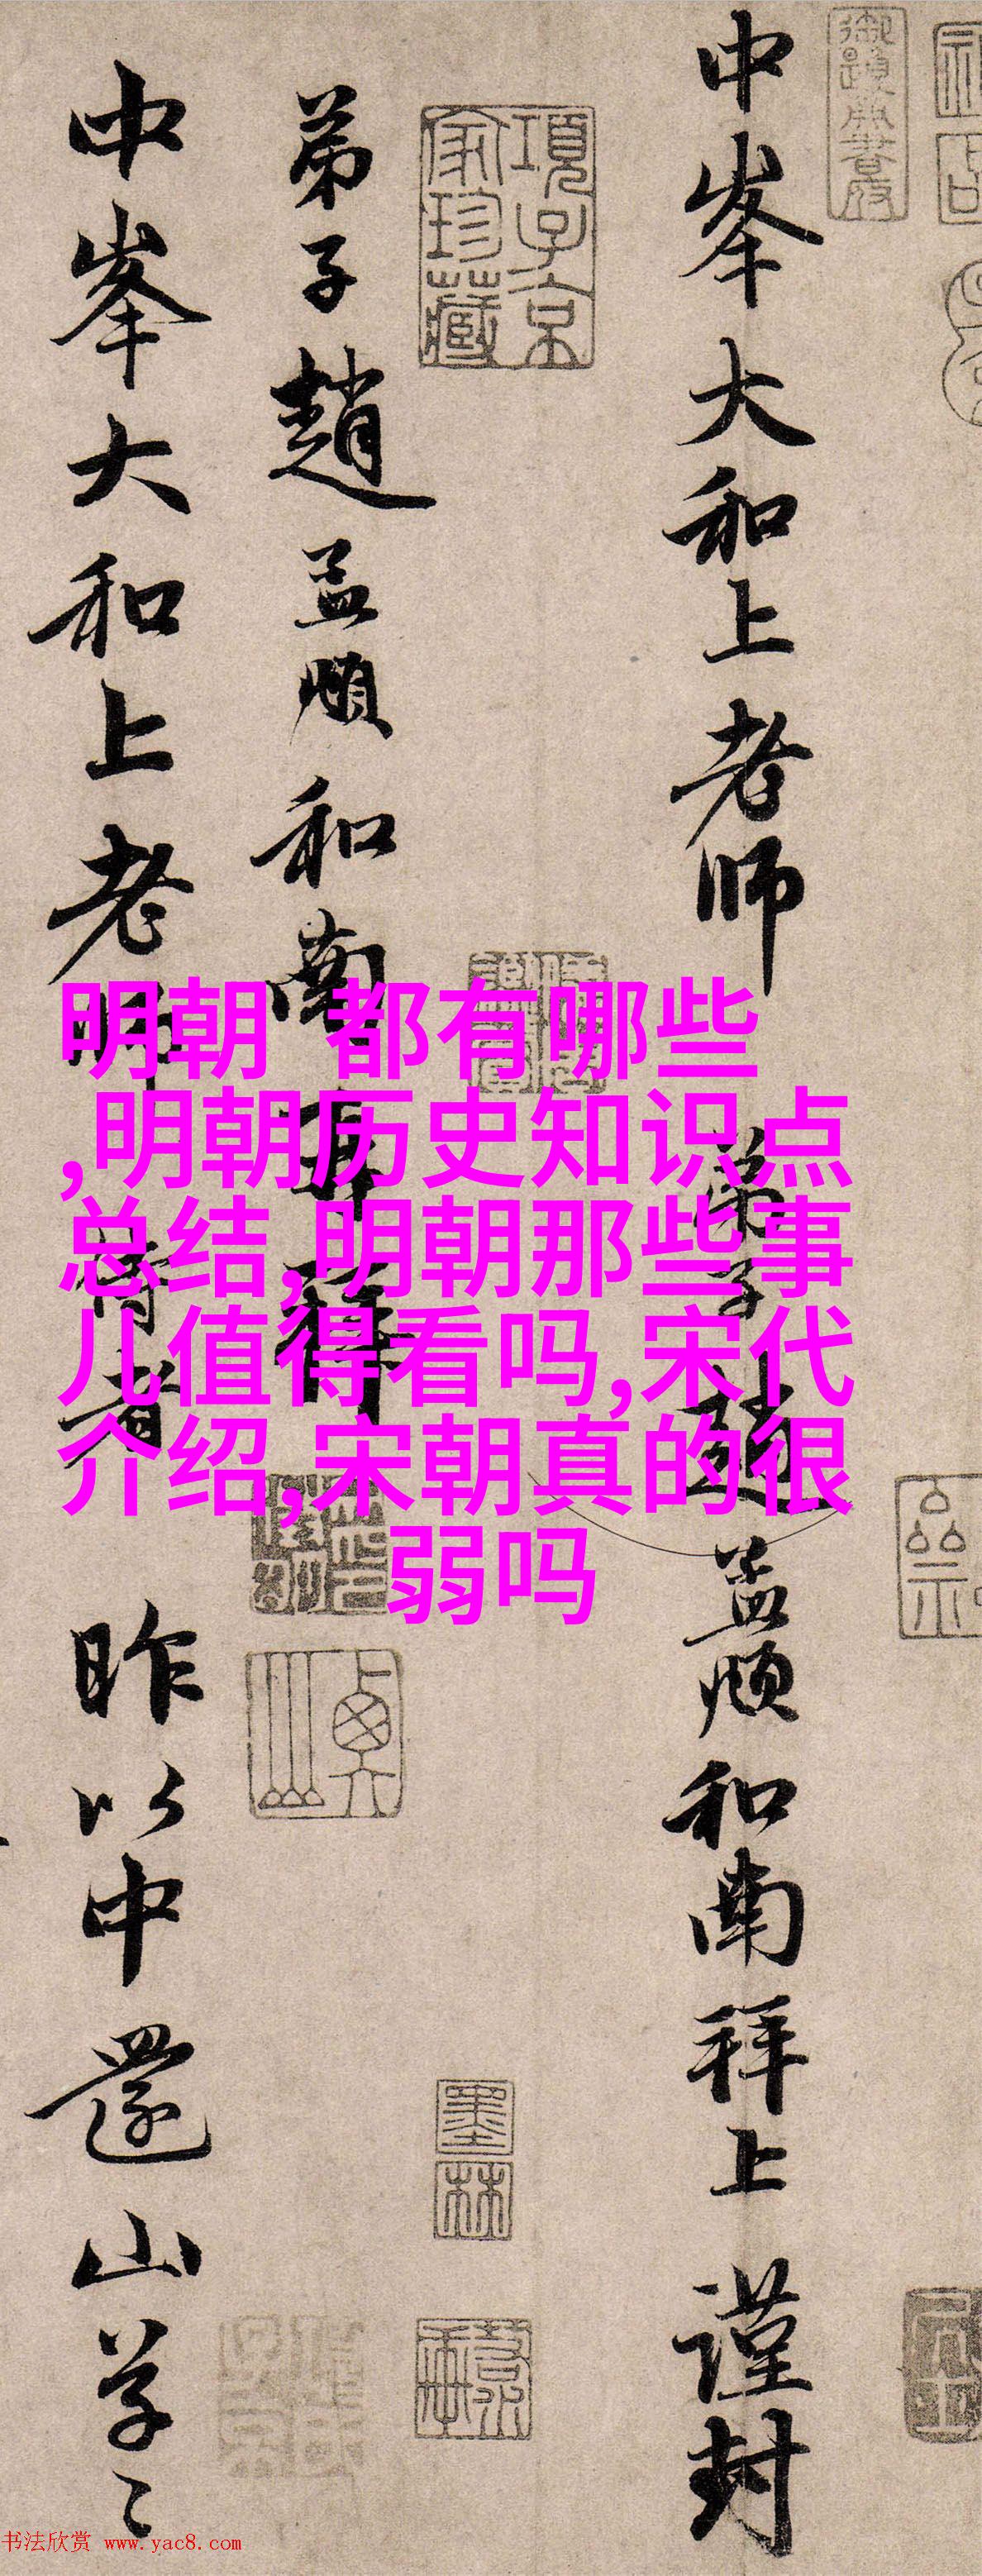 中峯大和上老师 弟子趙孟頫和南拜上 謹封
項子京家珍藏
弟子趙孟頫和南再拜
中峯大和上老师侍者 昨以中還山草々
墨林
明朝 都有哪些
,明朝历史知识点
总结,明朝那些事
儿值得看吗,宋代
介绍,宋朝真的很
弱吗
书法欣赏 www.yac8.com